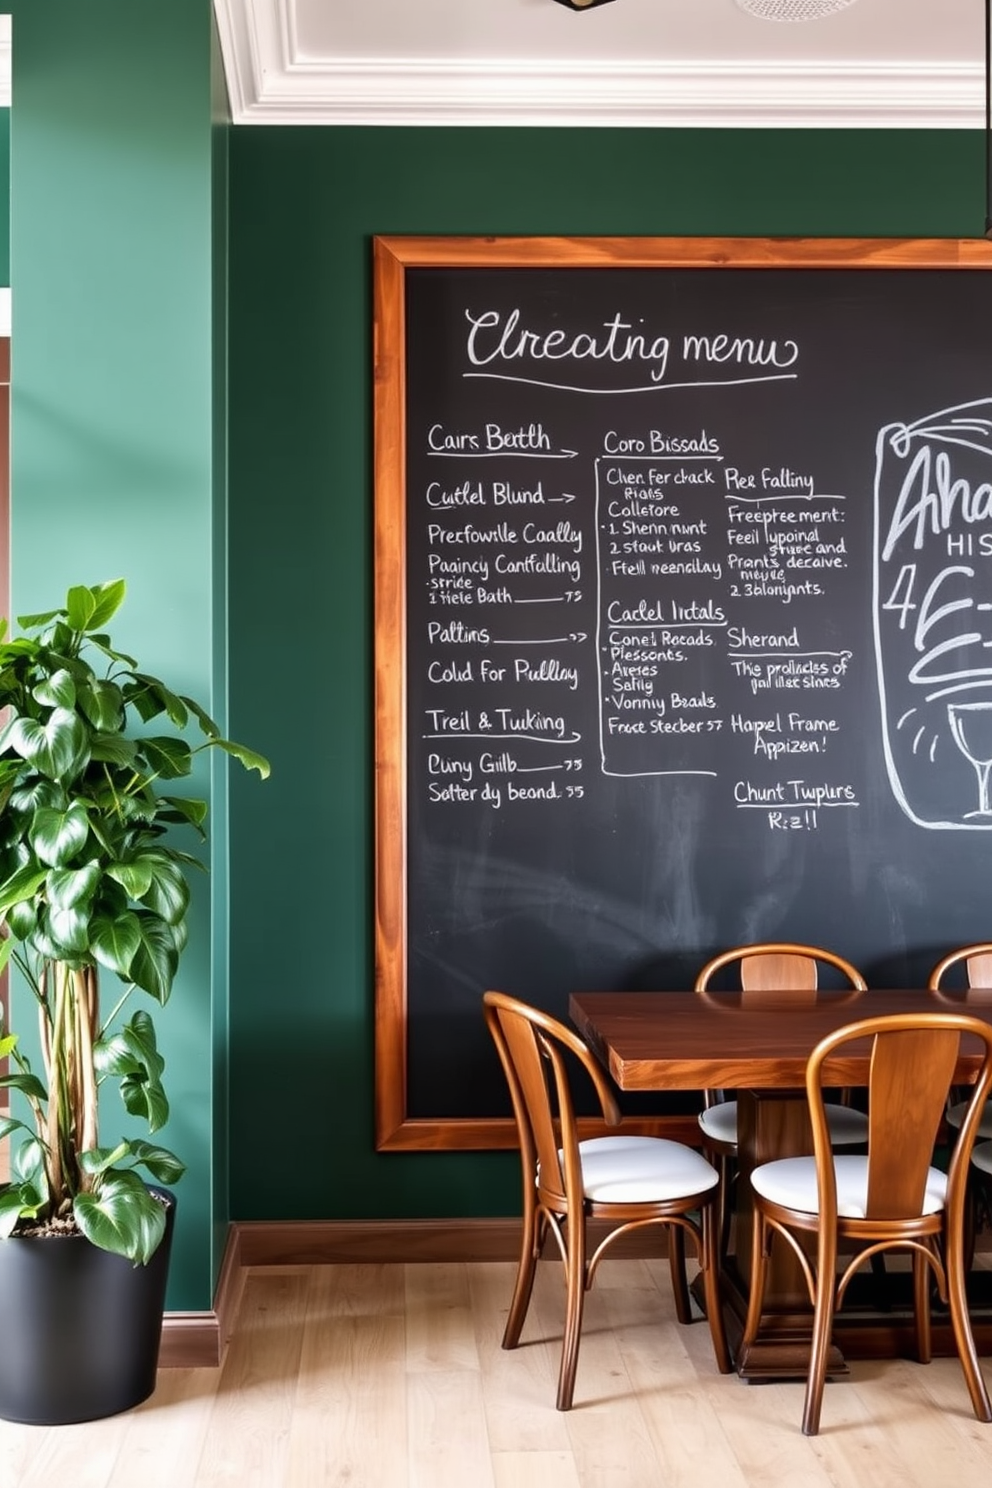 Clreating menu
Cairs Bertth
Cuttel Blund
Precfowille Caally
Paaincy Cantfalling
stride
1 Hele Bath 75
Paltins
Cold For Pullday
Treil & Tuuking
Cuiny Gillb 75
Satter dy beond. 55
Coro Bissads
Chen Fer ckack
Rials
Collstore
1 Shenn munt
2 staut Uras
Ftell neencilay
Cadel Intals
Conel Rocads.
Plessonts.
Averes
Safily
Vonniy Beails
Frace Stecber 57
Rex Falliny
Freeptee ment:
Feell lyponial
struce and
Prants decaive.
2 3blonjants.
Sherand
The prollacles of
Hapel Frame
Appizen!
Chunt Twplrs
Aha
HIS
4